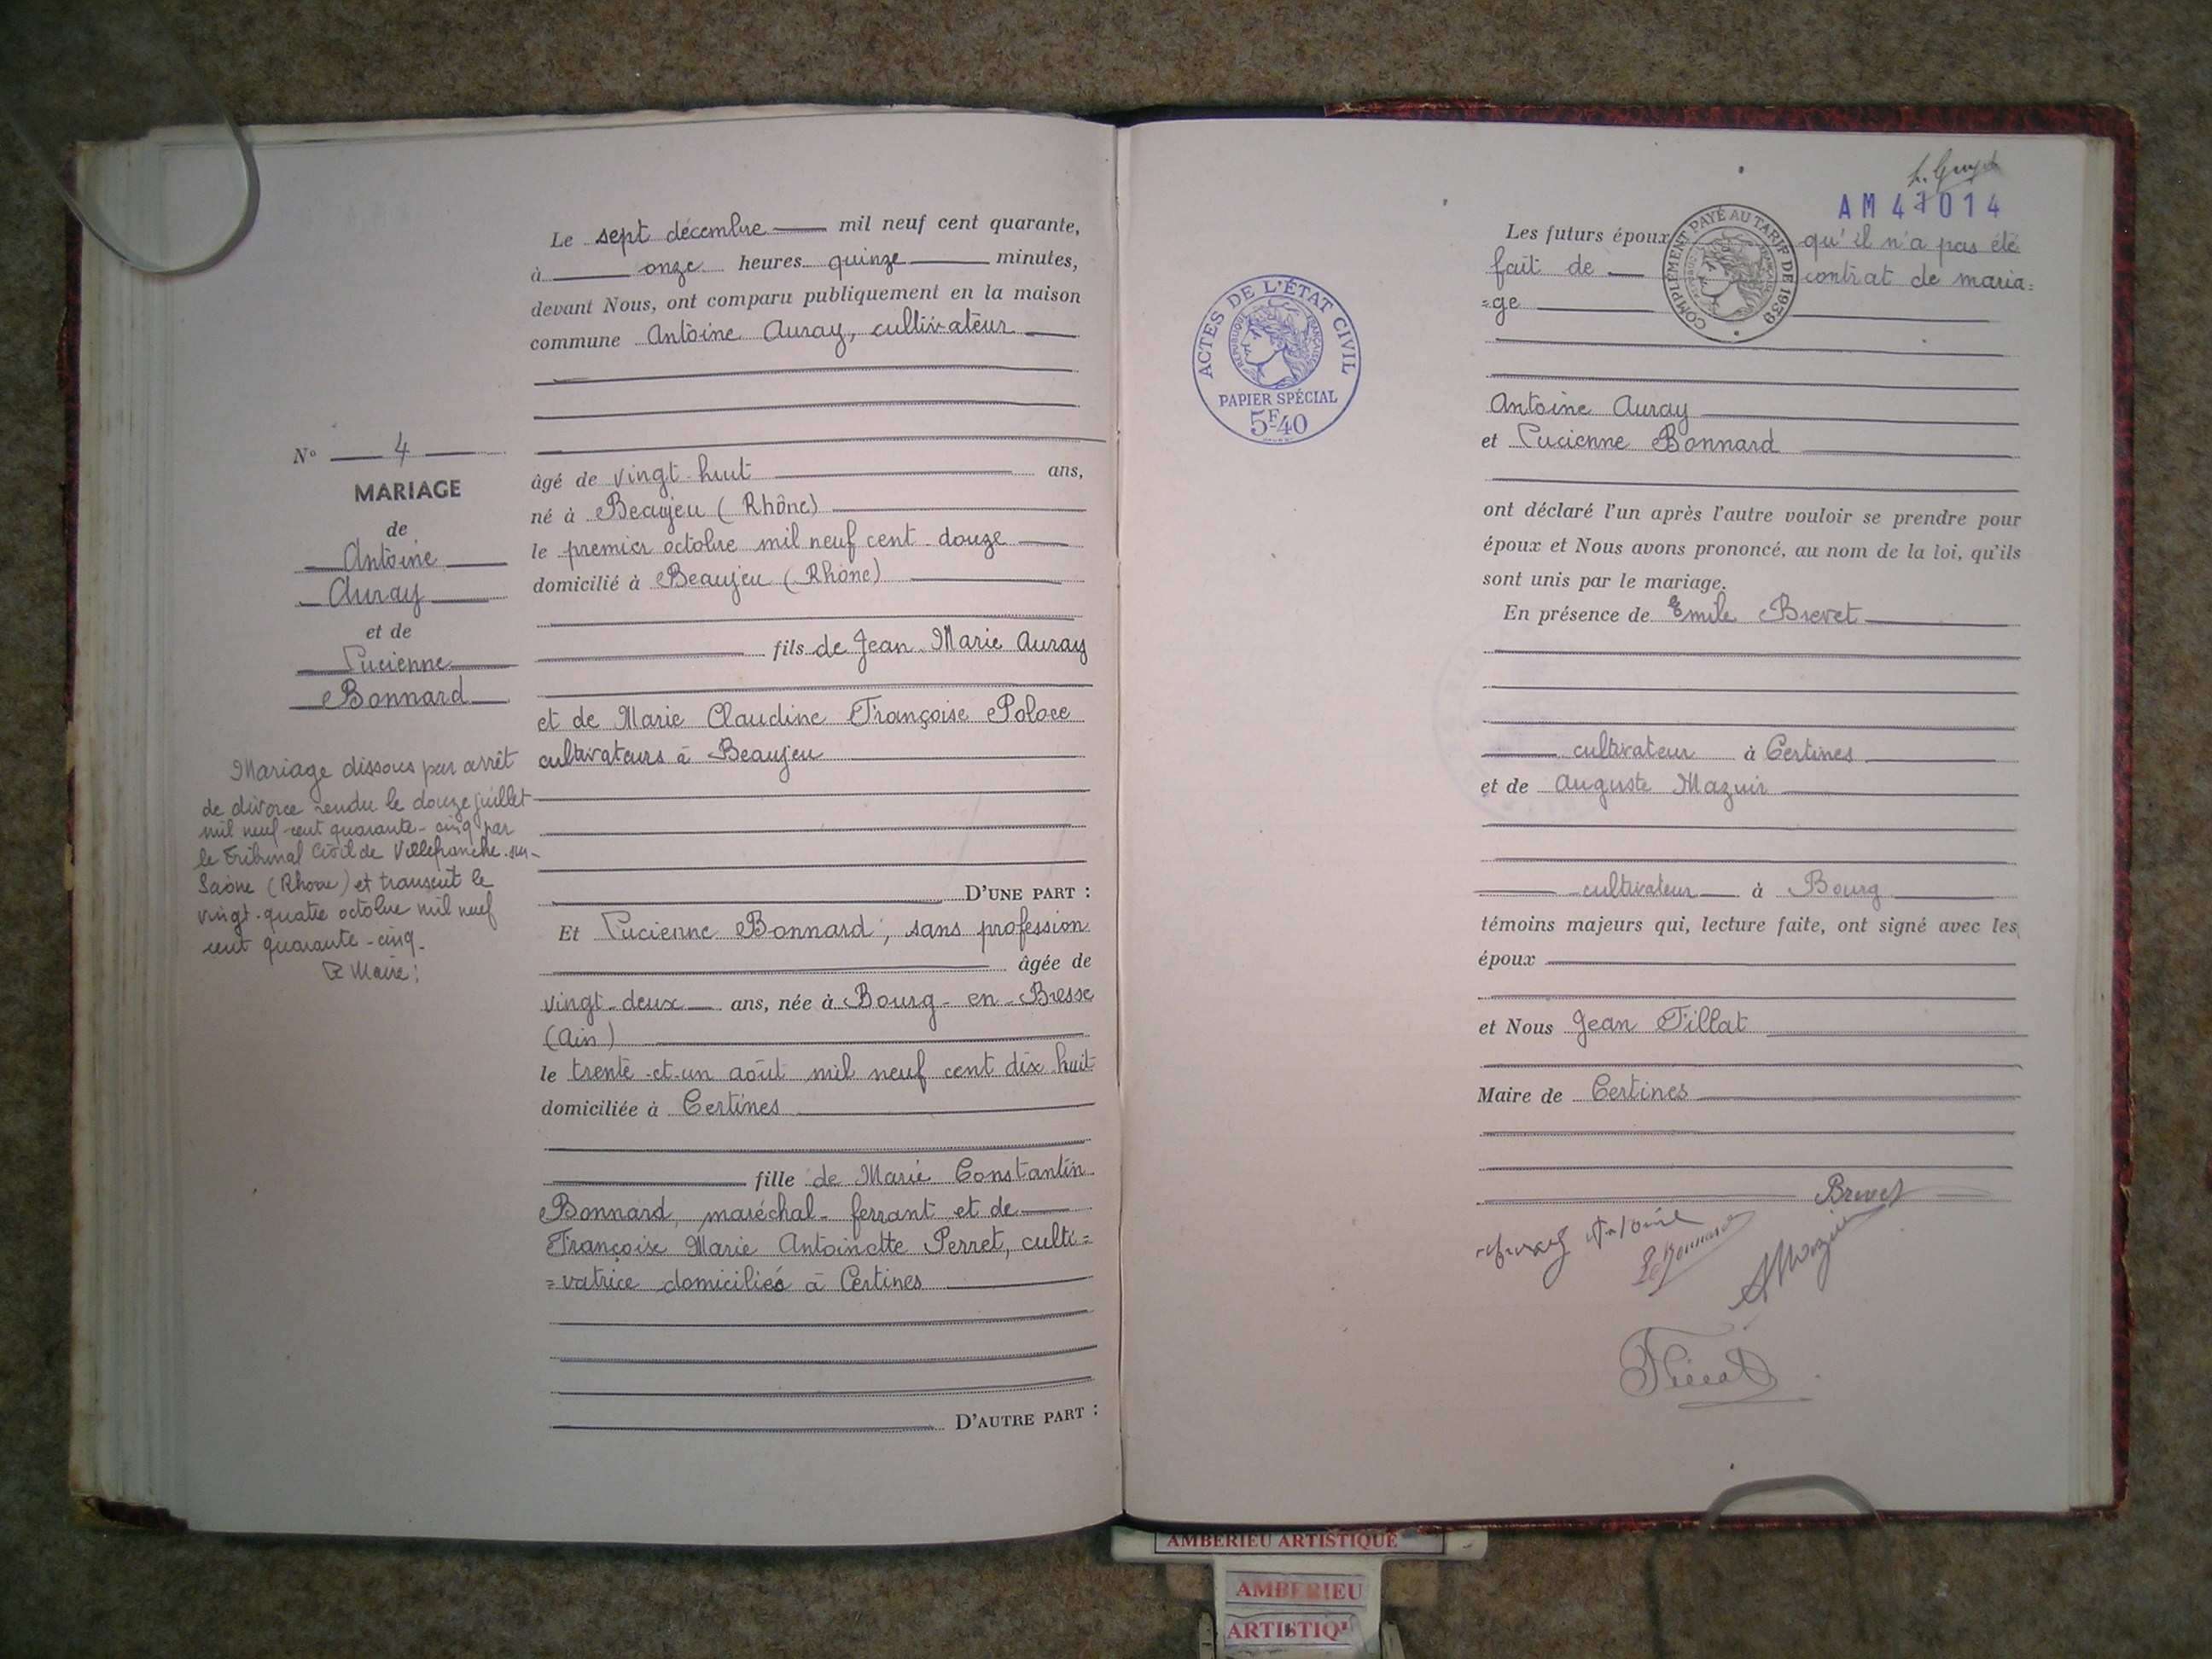 Le sept décembre mil neuf cent quarante,
à onze heures quinze minutes,
devant Nous, ont comparu publiquement en la maison
commune Antoine Auray, cultivateur
N° 4
MARIAGE
de
Antoine
Auray
et de
Lucienne
Bonnard
Mariage dissous par arrêt
de divorce rendu le douze juillet
mil neuf cent quarante-cinq par
le Tribunal Civil de Villefranche-sur-
Saône (Rhône) et transcrit le
vingt-quatre octobre mil neuf
cent quarante-cinq.
Le Maire:
âgé de vingt-huit ans,
né à Beaujeu (Rhône)
le premier octobre mil neuf cent douze
domicilié à Beaujeu (Rhône)
fils de Jean-Marie Auray
et de Marie Claudine Françoise Poloce
cultivateurs à Beaujeu
D'UNE PART :
Et Lucienne Bonnard, sans profession
âgée de
vingt-deux ans, née à Bourg-en-Bresse
(Ain)
le trente-et-un août mil neuf cent dix huit
domiciliée à Certines
fille de Marie Constantin
Bonnard, maréchal-ferrant et de
Françoise Marie Antoinette Perret, culti=
=vatrice domiciliés à Certines
D'AUTRE PART :
AM 47014
ACTES DE L'ÉTAT CIVIL
RÉPUBLIQUE FRANÇAISE
PAPIER SPÉCIAL
5F40
COMPLÉMENT PAYÉ AU TARIF DE 1939
Les futurs époux qu'il n'a pas été
fait de contrat de maria=
=ge
Antoine Auray
et Lucienne Bonnard
ont déclaré l'un après l'autre vouloir se prendre pour
époux et Nous avons prononcé, au nom de la loi, qu'ils
sont unis par le mariage.
En présence de Emile Brevet
cultivateur à Certines
et de Auguste Mazuir
cultivateur à Bourg
témoins majeurs qui, lecture faite, ont signé avec les
époux
et Nous Jean Tillat
Maire de Certines
Brevet
L Bonnard
A Mazuir
AMBERIEU ARTISTIQUE
AMBERIEU
ARTISTIQ